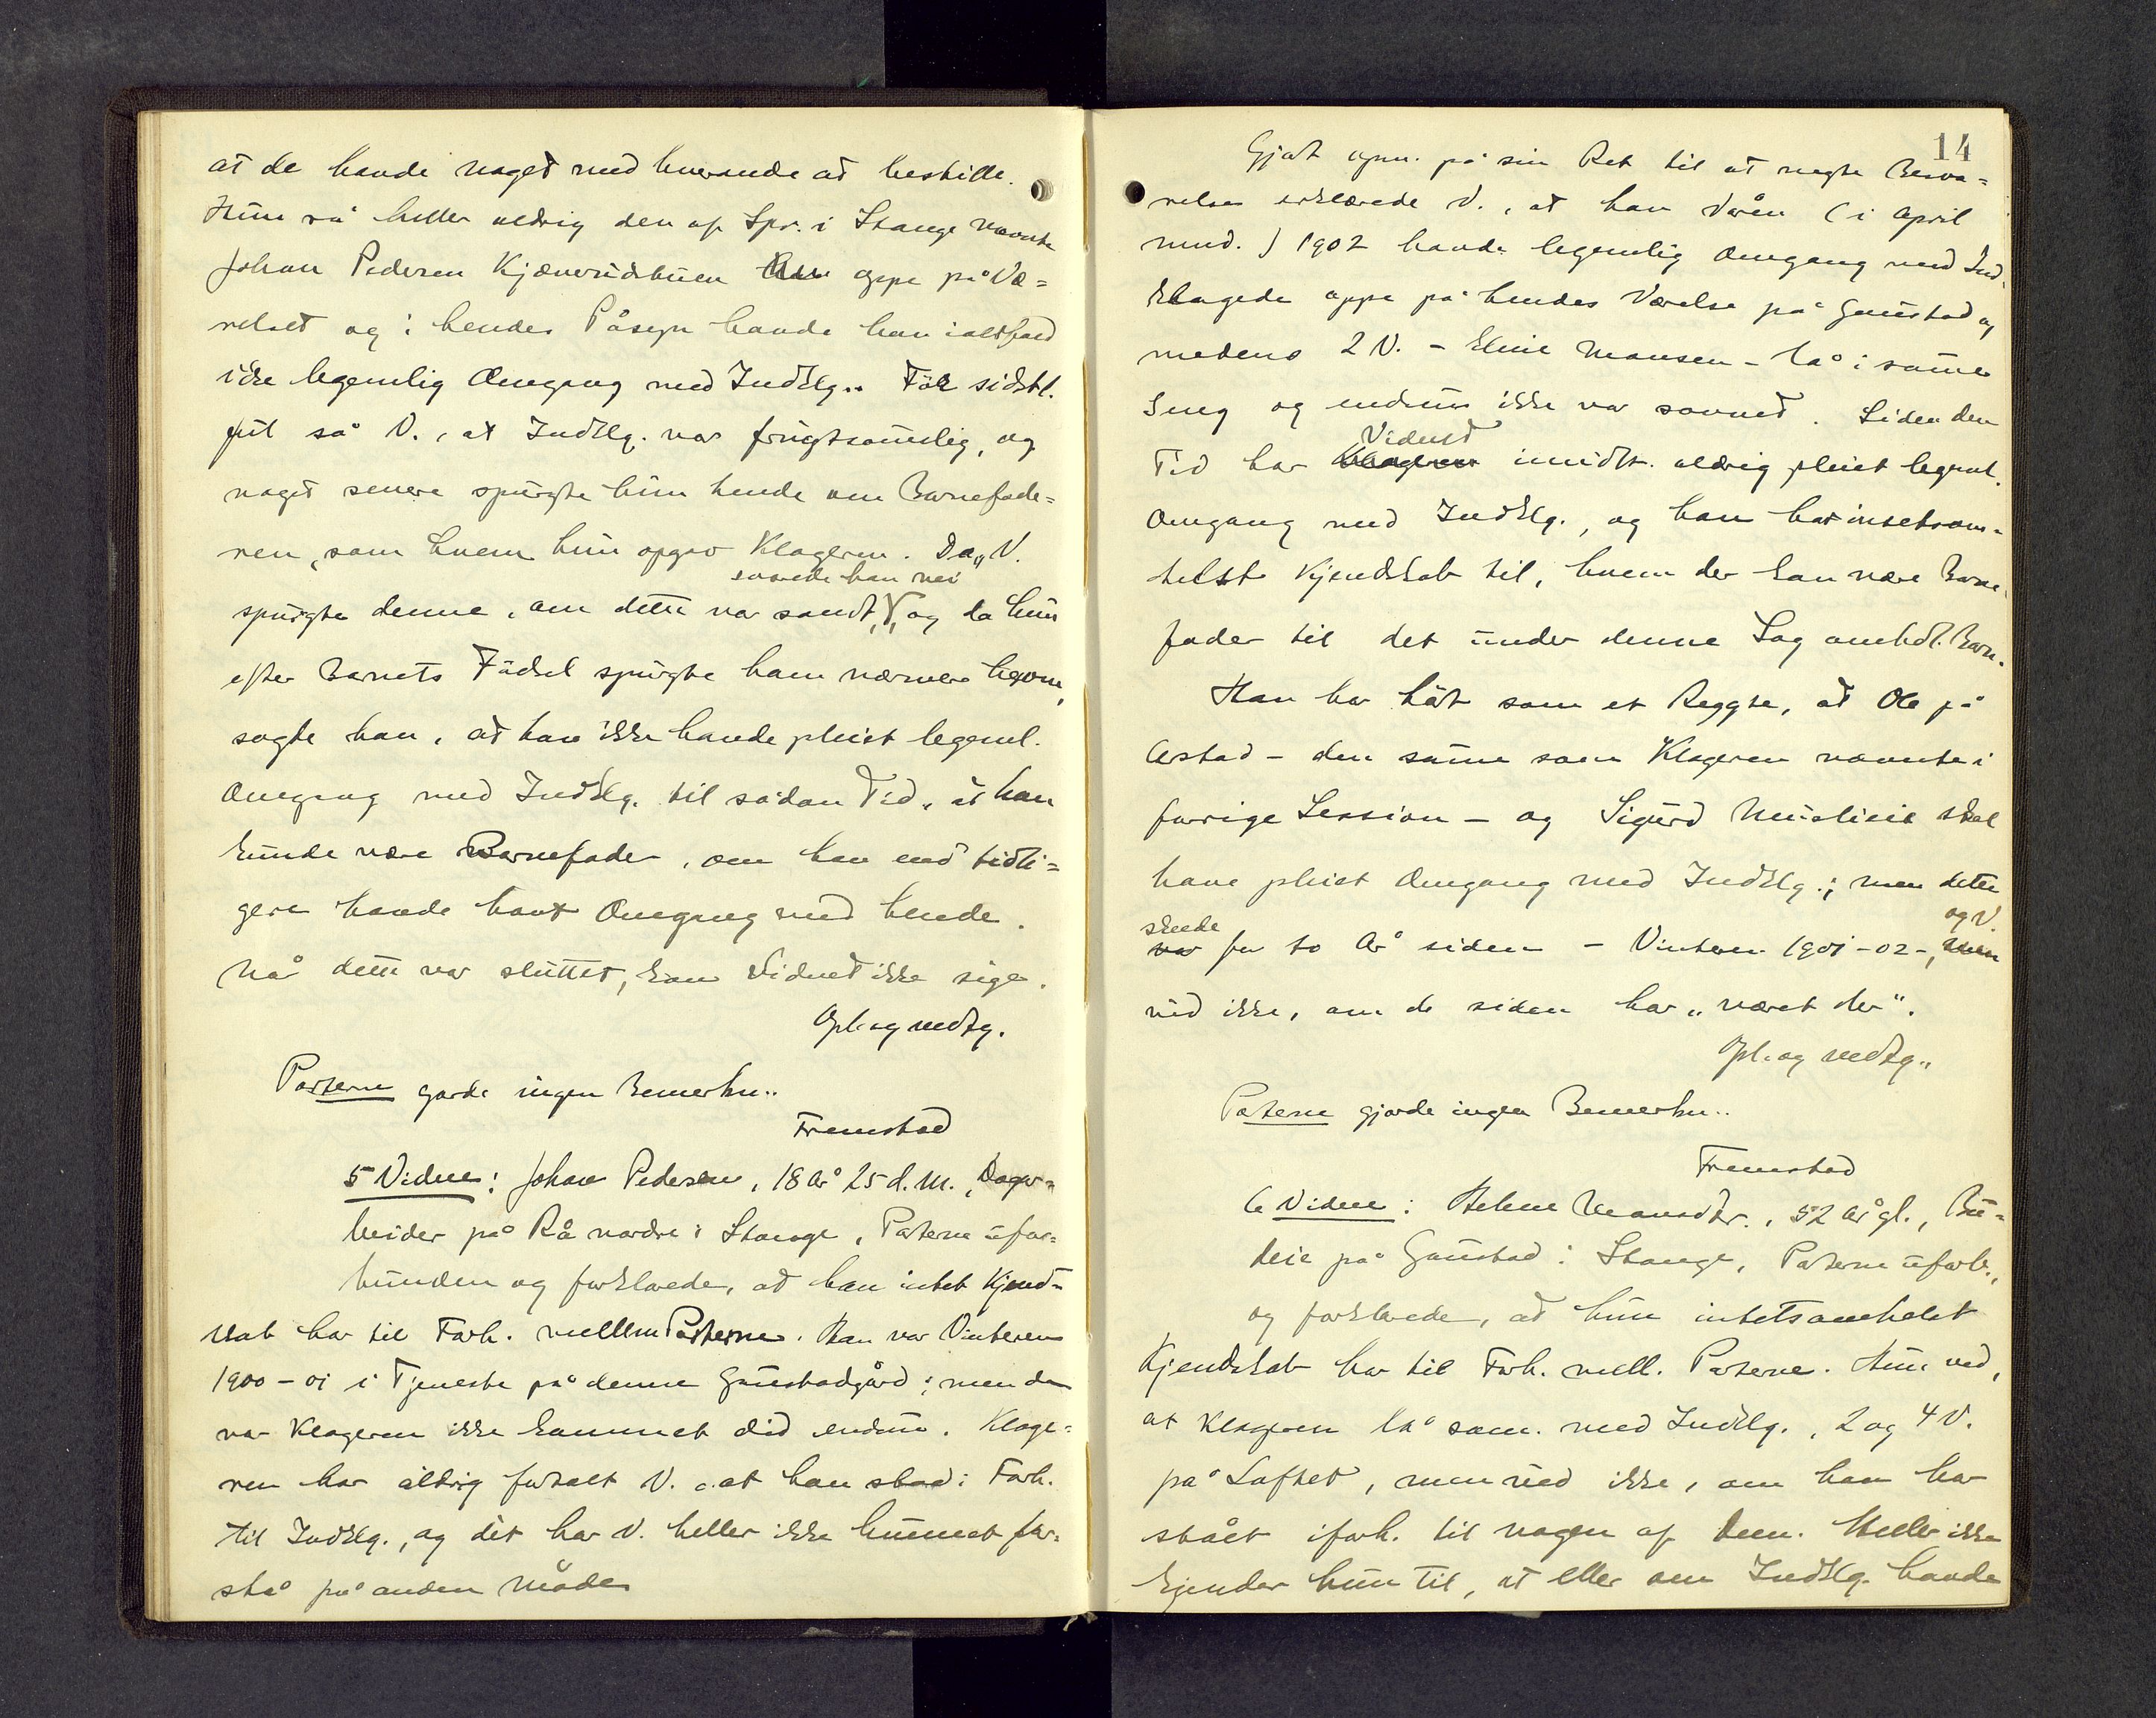 at de havde noget med hverandre at bestille.
Hun så heller aldrig den af Spr. i Stange nævnte
Johan Pedersen Kjæverudstuen oppe på Væ=
relset og i hendes Påsyn havde han ialtfald
ikke legemlig Omgang med Indklg.. Før sidstl.
Jul så V., at Indklg. var frugtsommelig, og
noget senere spurgte hun hende om Barnefade=
ren, som hvem hun opgav Klageren. Da V.
svarede han nei
spurgte denne, om dette var sandt, og da hun
efter Barnets Fødsel spurgte ham nærmere herom,
sagde han, at han ikke havde pleiet legeml.
Omgang med Indklg. til sådan Tid, at han
kunde være Barnefader, om han end tidli=
gere havde havt Omgang med hende.
Når dette var sluttet, kan Vidnet ikke sige.
Opl. og vedtg.
Parterne gjorde ingen Bemerkn..
Fremstod
5 Vidne: Johan Pedersen, 18 år 25 d. M., Dagar=
beider på Rå nordre i Stange, Parterne ufor=
bunden og forklarede, at han intet Kjend=
skab har til Forh. mellem Parterne. Han var Vinteren
1900-01 i Tjeneste på denne Gaustadgård; men da
var Klageren ikke kommet did endnu. Klage=
ren har aldrig fortalt V. at han stod i Forh.
til Indklg., og det har V. heller ikke kunnet for=
stå på anden Måde
14
Gjort opm. på sin Ret til at negte Besva=
relse erklærede V., at han Våren (i April
mnd.) 1902 havde legemlig Omgang med Ind=
klagede oppe på hendes Værelse på Gaustad og
medens 2 V. - Eline Monsen - lå i samme
Seng og endnu ikke var sovnet. Siden den
Vidnet
Tid har Klageren imidlt. aldrig pleiet legeml.
Omgang med Indklg., og han har intetsom=
helst Kjendskab til, hvem der kan være Barne=
fader til det under denne Sag omhdl. Barn.
Han har hørt som et Rygte, at Ole på
Arstad - den samme som Klageren nævnte i
forrige Session - og Sigurd skal
have pleiet Omgang med Indklg.; men dette
skede og V.
var for to År siden - Vinteren 1901-02 -, men
ved ikke, om de siden har "været der".
Opl. og vedtg..
Parterne gjorde ingen Bemerkn..
Fremstod
6 Vidne: Helene Monsdtr., 52 år gl., Bu=
deie på Gaustad i Stange, Parterne uforb.,
og forklarede, at hun intetsomhelst
Kjendskab har til Forh. mell. Parterne. Hun ved,
at Klageren lå sam. med Indklg., 2 og 4 V.
på Loftet, men ved ikke, om han har
stået i forh. til nogen af dem. Heller ikke
kjender hun til, at eller om Indklg. havde